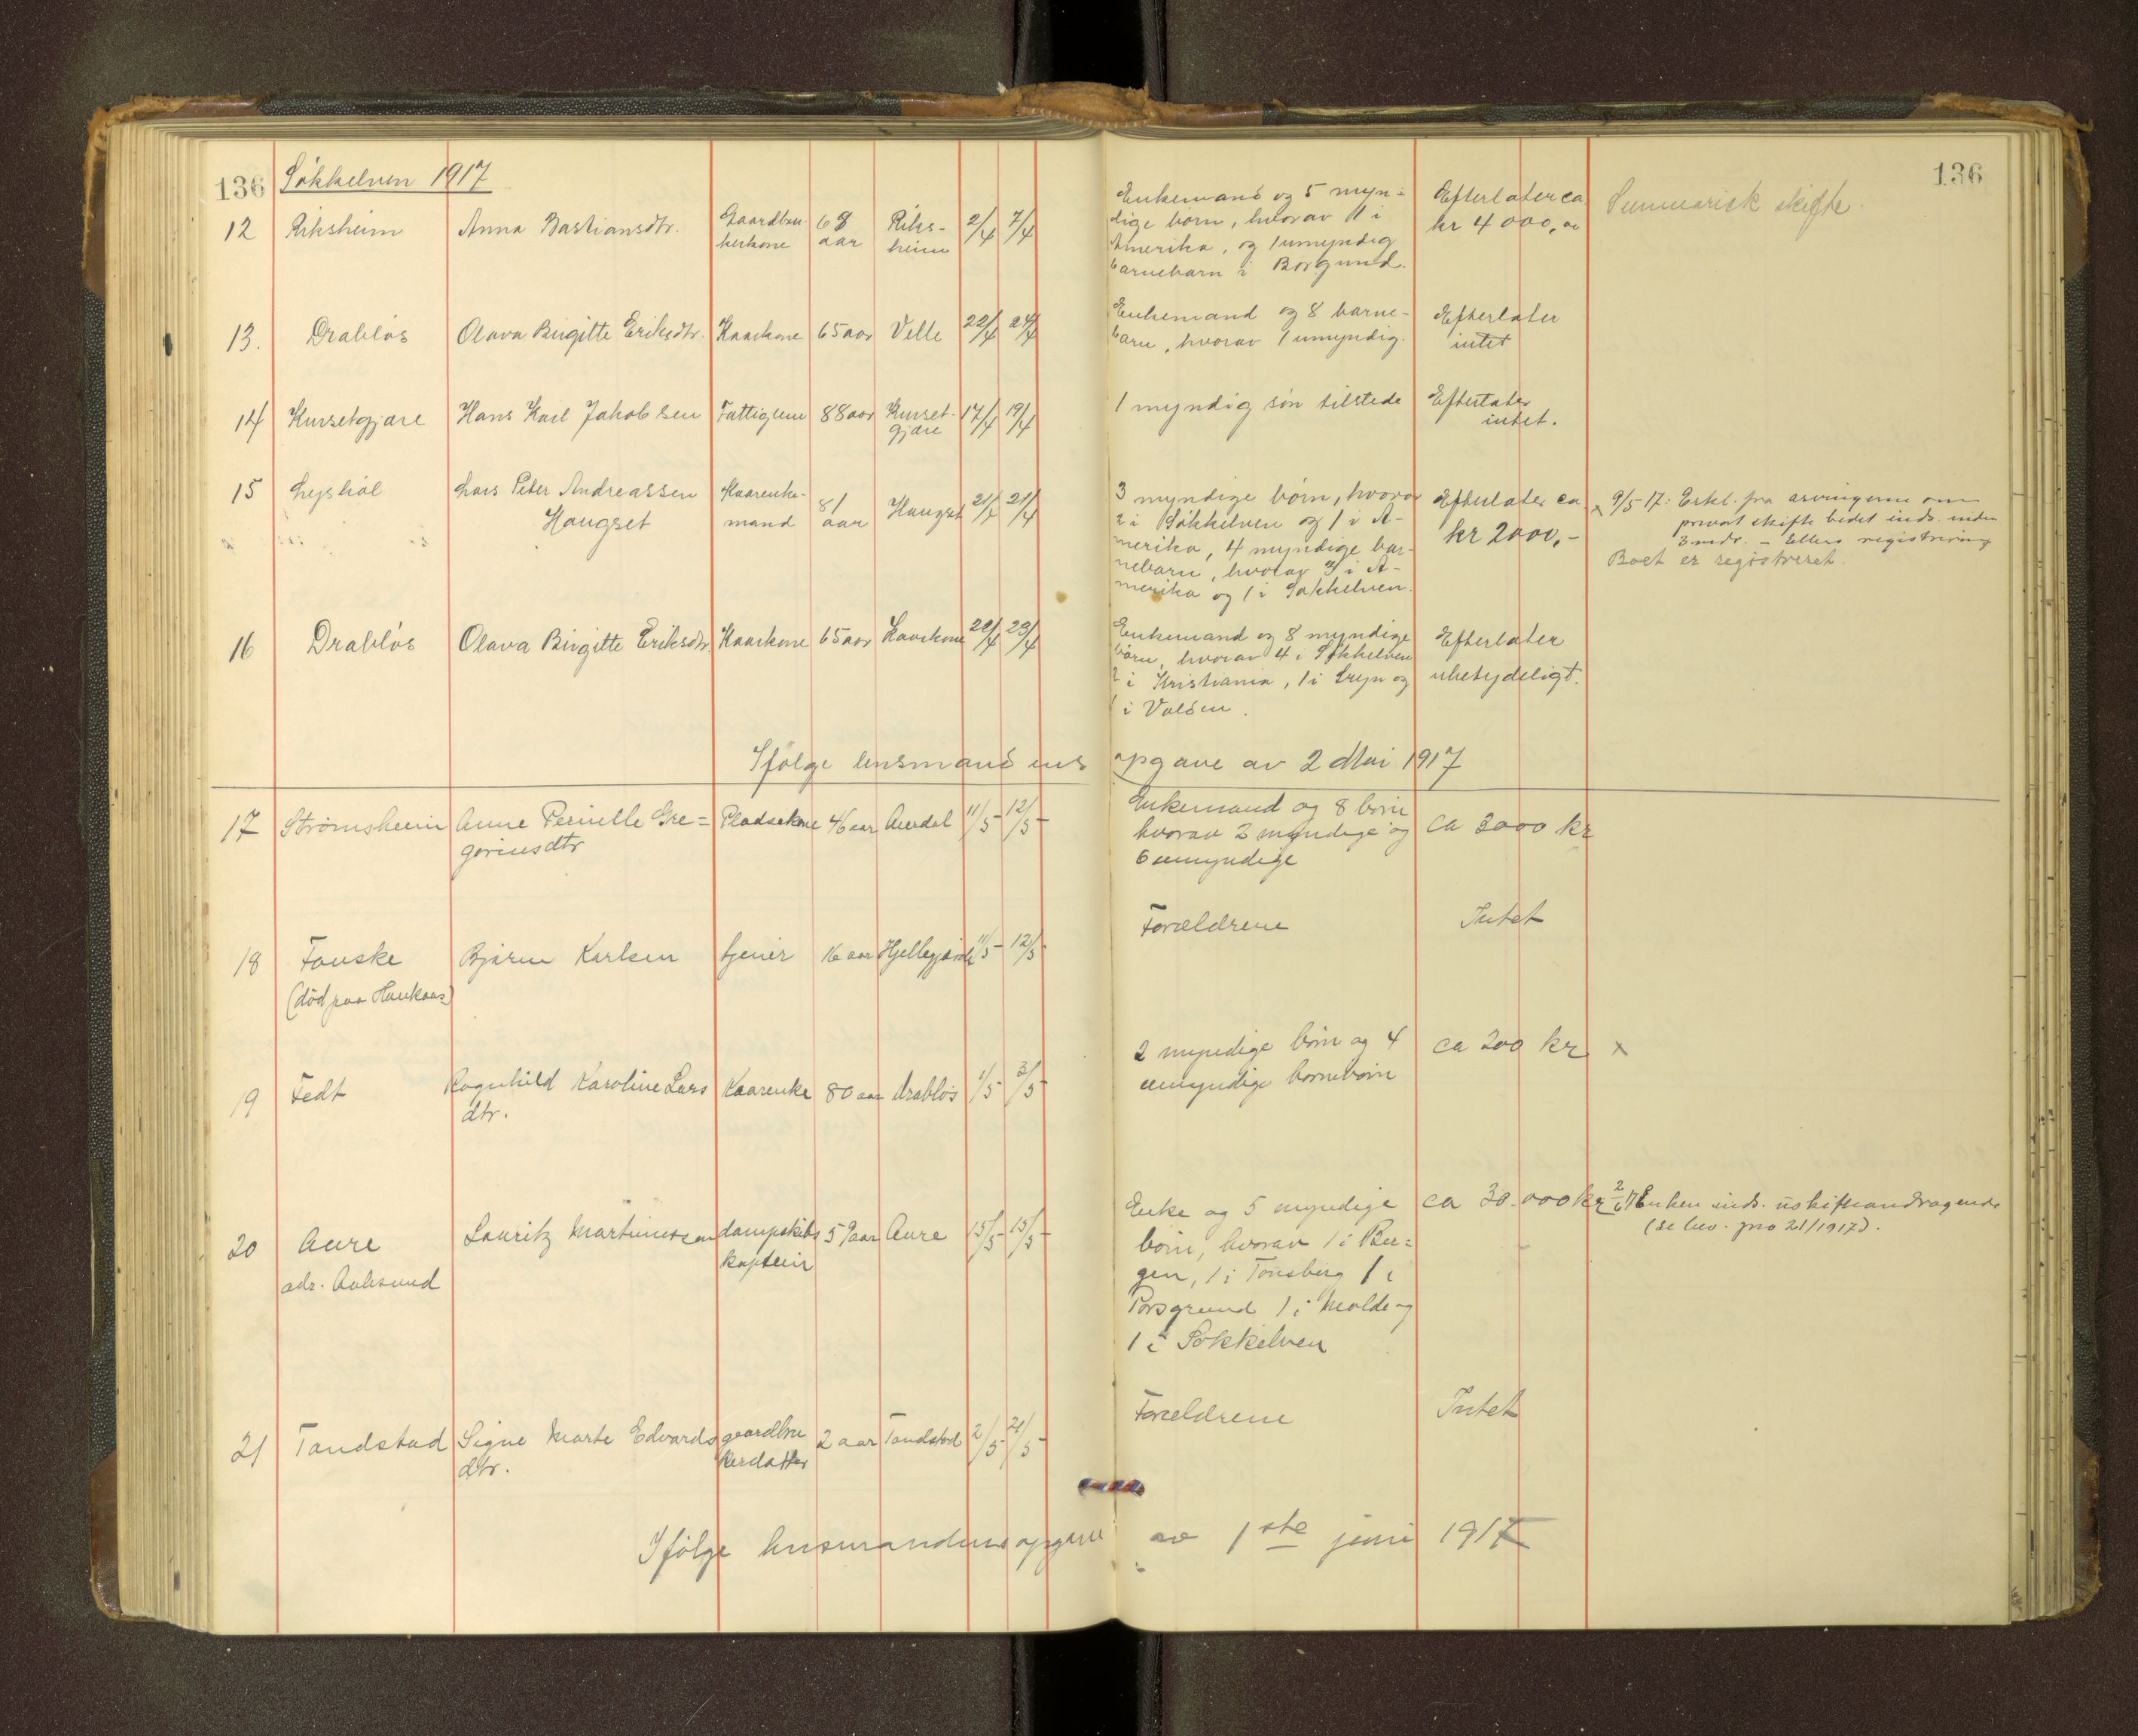 136 Søkkelven 1917 136
12 Riksheim Anna Bastiansdtr. Gaardbru- 68 Riks- 2/4 7/4 Enkemand og 5 myn- Efterlater ca Summarisk skifte.
kerkone aar heim dige børn, hvorav 1 i kr 4000,00
Amerika, og 1 umyndig
barnebarn i Borgund.
13. Drabløs Olava Birgitte Eriksdtr. Kaarkone 65 aar Velle 22/4 24/4 Enkemand og 8 barne- Efterlater
barn, hvorav 1 umyndig. intet
14 Kursetgjære Hans Karl Jakobsen Fattiglem 88 aar Kurset- 17/4 19/4 1 myndig søn tilstede Efterlater
gjære intet.
15 Lyshol Lars Peter Andreassen Kaarenke- 81 Haugset 21/4 21/4 3 myndige børn, hvorav Efterlater ca x 9/5-17: Erkl. fra arvingerne om
Haugset mand aar 2 i Søkkelven og 1 i A- kr 2000,- privat skifte bedet inds. inden
merika, 4 myndige bar- 3 mdr. - Ellers registrering
nebarn, hvorav 3 i A- Boet er registreret.
merika og 1 i Søkkelven.
16 Drabløs Olava Birgitte Eriksdtr. Kaarkone 65 aar Kaarkone 22/4 23/4 Enkemand og 8 myndige Efterlater
børn, hvorav 4 i Søkkelven ubetydeligt.
2 i Kristiania, 1 i Stryn og
1 i Valsen.
Ifølge lensmandens opgave av 2 Mai 1917
17 Strømsheim Anne Pernille Gre= Pladsekone 46 aar Aurdal 11/5 12/5 Enkemand og 8 børn ca 3000 kr
goriusdtr hvorav 2 myndige og
6 umyndige
18 Fauske Bjarne Karlsen tjener 16 aar Hjellegjerde 11/5 12/5 Forældrene Intet
(død paa Haukaas)
19 Fedt Ragnhild Karoline Lars Kaarenke 80 aar Drabløs 1/5 3/5 2 myndige børn og 4 ca 200 kr x
dtr. umyndige barnebørn
20 Aure Lauritz Martinussen dampskibs 59 aar Aure 15/5 15/5 Enke og 5 myndige ca 30.000 kr 2/6 17 Enken inds. uskifteandragende
adr. Aalesund kaptein børn, hvorav 1 i Ber= (se lev. pro 21/1917).
gen, 1 i Tønsberg 1 i
Porsgrund 1 i Molde og
1 i Søkkelven
21 Tandstad Signe Marte Edvards gaardbru 2 aar Tandstad 2/5 21/5 Forældrene Intet
dtr. kerdatter
Ifølge lensmandens opgave av 1ste juni 1917